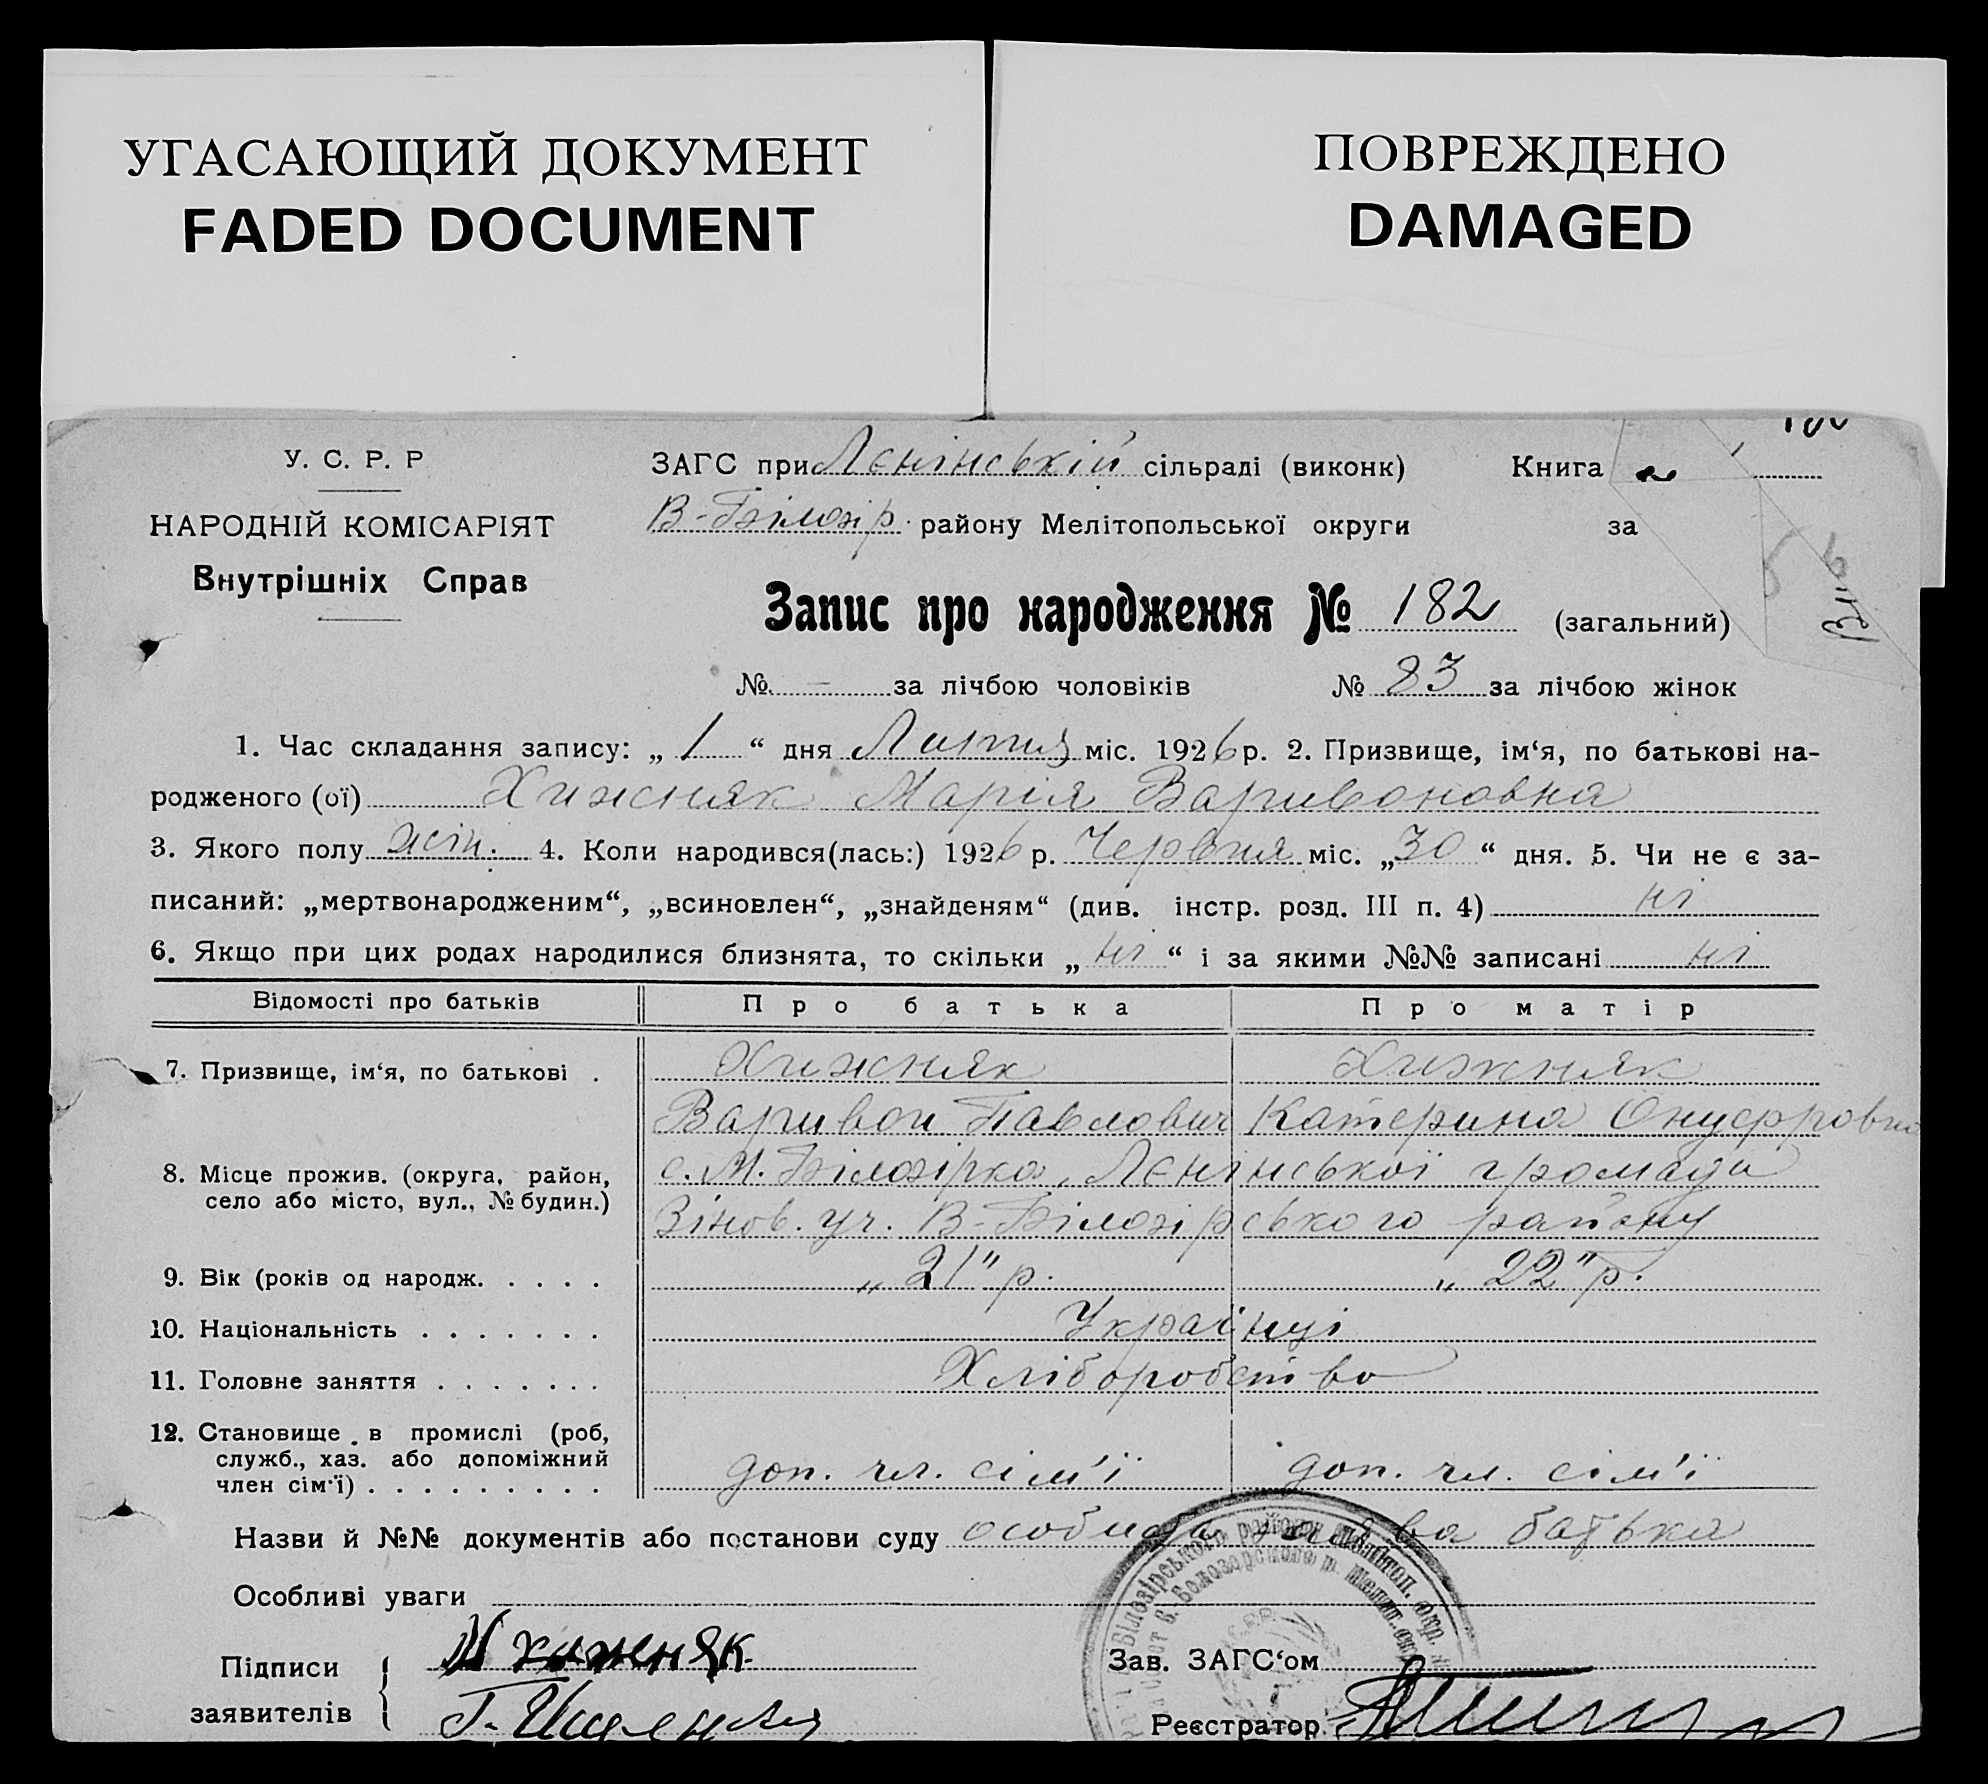 УГАСАЮЩИЙ ДОКУМЕНТ
FADED DOCUMENT
ПОВРЕЖДЕНО
DAMAGED
У. С. Р. Р
НАРОДНІЙ КОМІСАРІЯТ
Внутрішніх Справ
ЗАГС при Лєнінській сільраді (виконк) Книга
В-Білозір. району Мелітопольської округи за
Запис про народження № 182 (загальний)
№ – за лічбою чоловіків № 83 за лічбою жінок
1. Час складання запису: „ 1 “ дня Липня міс. 1926 р. 2. Призвище, ім‘я, по батькові на-
родженого (ої) Хижняк Марія Варивоновна
3. Якого полу жін. 4. Коли народився(лась:) 1926 р. Червня міс. „30“ дня. 5. Чи не є за-
писаний: „мертвонародженим“, „всиновлен“, „знайденям“ (див. інстр. розд. III п. 4) ні
6. Якщо при цих родах народилися близнята, то скільки „ ні “ і за якими №№ записані ні
Відомості про батьків Про батька Про матір
7. Призвище, ім‘я, по батькові . Хижняк Хижняк
Варивон Павлович Катерина Онуфровна
8. Місце прожив. (округа, район, с. М. Білозірка, Лєнінської громади
село або місто, вул., № будин.) Зінов. уч. В-Білозірського району
9. Вік (років од народж. . . . . „ 21" р. „ 22" р.
10. Національність . . . . . . . Українці
11. Головне заняття . . . . . . . Хліборобство
12. Становище в промислі (роб,
служб., хаз. або допоміжний
член сім‘ї) . . . . . . . . . доп. чл. сім'ї доп. чл. сім'ї
Назви й №№ документів або постанови суду особиста заява батька
Особливі уваги
Підписи Хижняк Зав. ЗАГС‘ом
заявителів Реєстратор